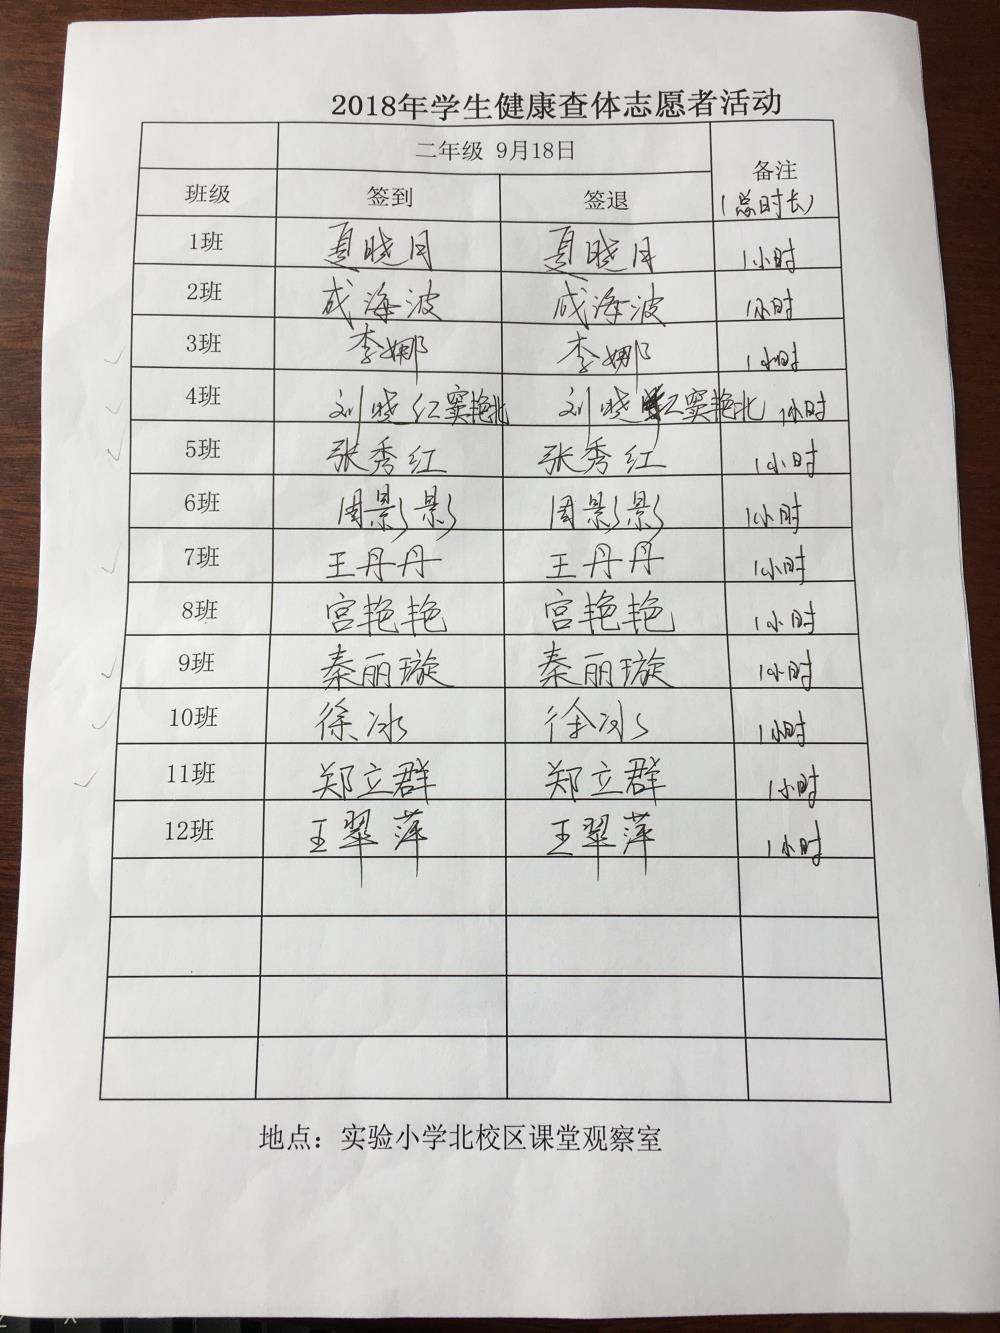 2018年学生健康查体志愿者活动
二年级 9月18日
备注
(总时长)
班级 签到 签退
1班 夏晓月 夏晓月 1小时
2班 成海波 成海波 1小时
3班 李娜 李娜 1小时
4班 刘晓红窦艳北 刘晓红窦艳北 1小时
5班 张秀红 张秀红 1小时
6班 周影影 周影影 1小时
7班 王丹丹 王丹丹 1小时
8班 宫艳艳 宫艳艳 1小时
9班 秦丽璇 秦丽璇 1小时
10班 徐冰 徐冰 1小时
11班 郑立群 郑立群 1小时
12班 王翠萍 王翠萍 1小时
地点：实验小学北校区课堂观察室